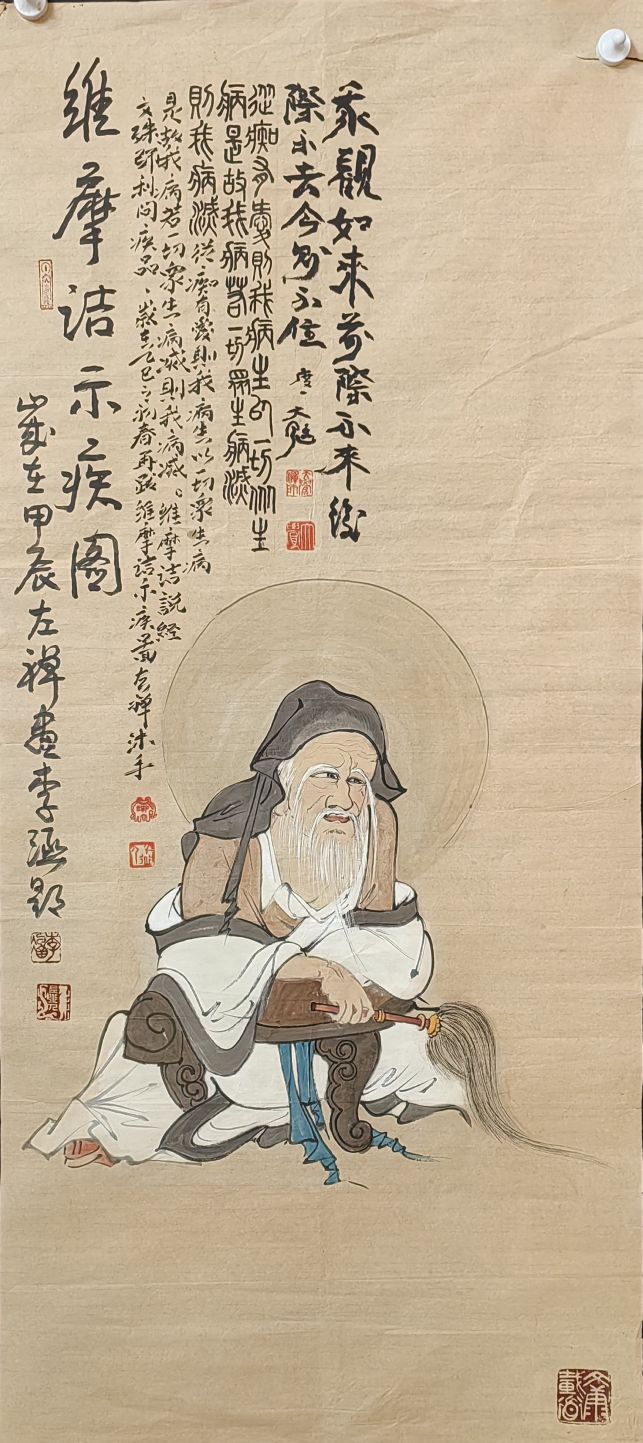 我觀如來前際不來後
際不去今則不住
從痴有愛則我病生以一切众生
病是故我病若一切眾生病滅
則我病滅 從痴有愛則我病生以一切眾生病
是故我病若一切眾生病滅則我病滅。維摩詰說經
文殊師利問疾品、歲在乙巳之初春再跋維摩詰示疾圖左禪沐手
維摩詰示疾图
歲在甲辰左禪畫李涵题